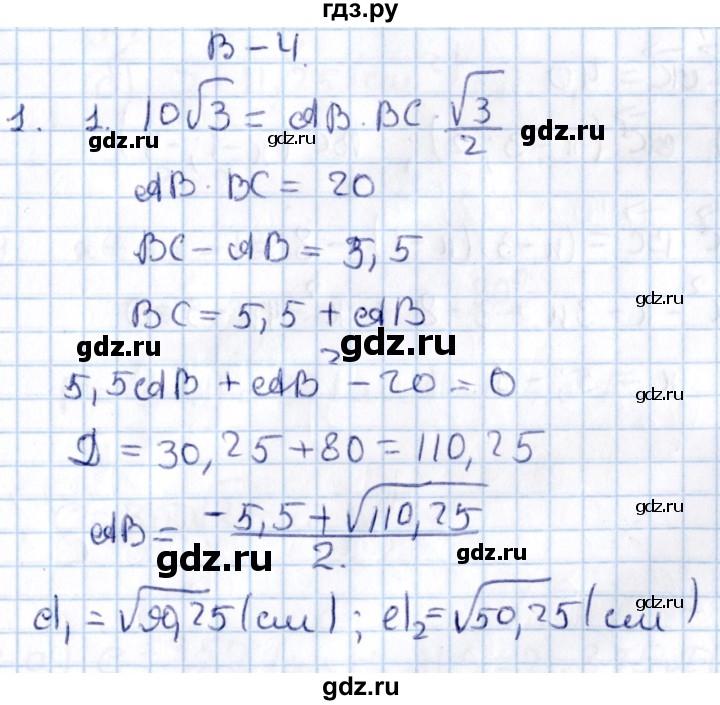 гдз.ру
В - 4.
1. 1. 10√3 = AB · BC · √3/2
gdz.ru gdz.ru gdz.ru
AB · BC = 20
BC - AB = 5,5
BC = 5,5 + AB
gdz.ru
gdz.ru gdz.ru
5,5AB + AB² - 20 = 0
gdz.ru
D = 30,25 + 80 = 110,25
AB = (-5,5 + √110,25)/2.
gdz.ru
gdz.ru gdz.ru
d₁ = √90,25 (см); d₂ = √50,25 (см)
gdz.ru
gdz.ru